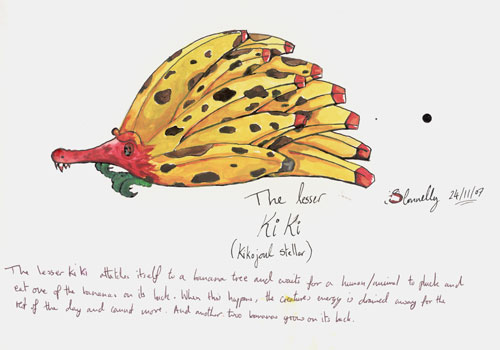 The lesser
KiKi
(Kikojoul stellar)
S Connelly 24/11/07
The lesser KiKi attatches itself to a banana tree and waits for a human/animal to pluck and
eat one of the bananas on its back. When this happens, the creatures energy is drained away for the
rest of the day and cannot move. And another two bananas grow on its back.